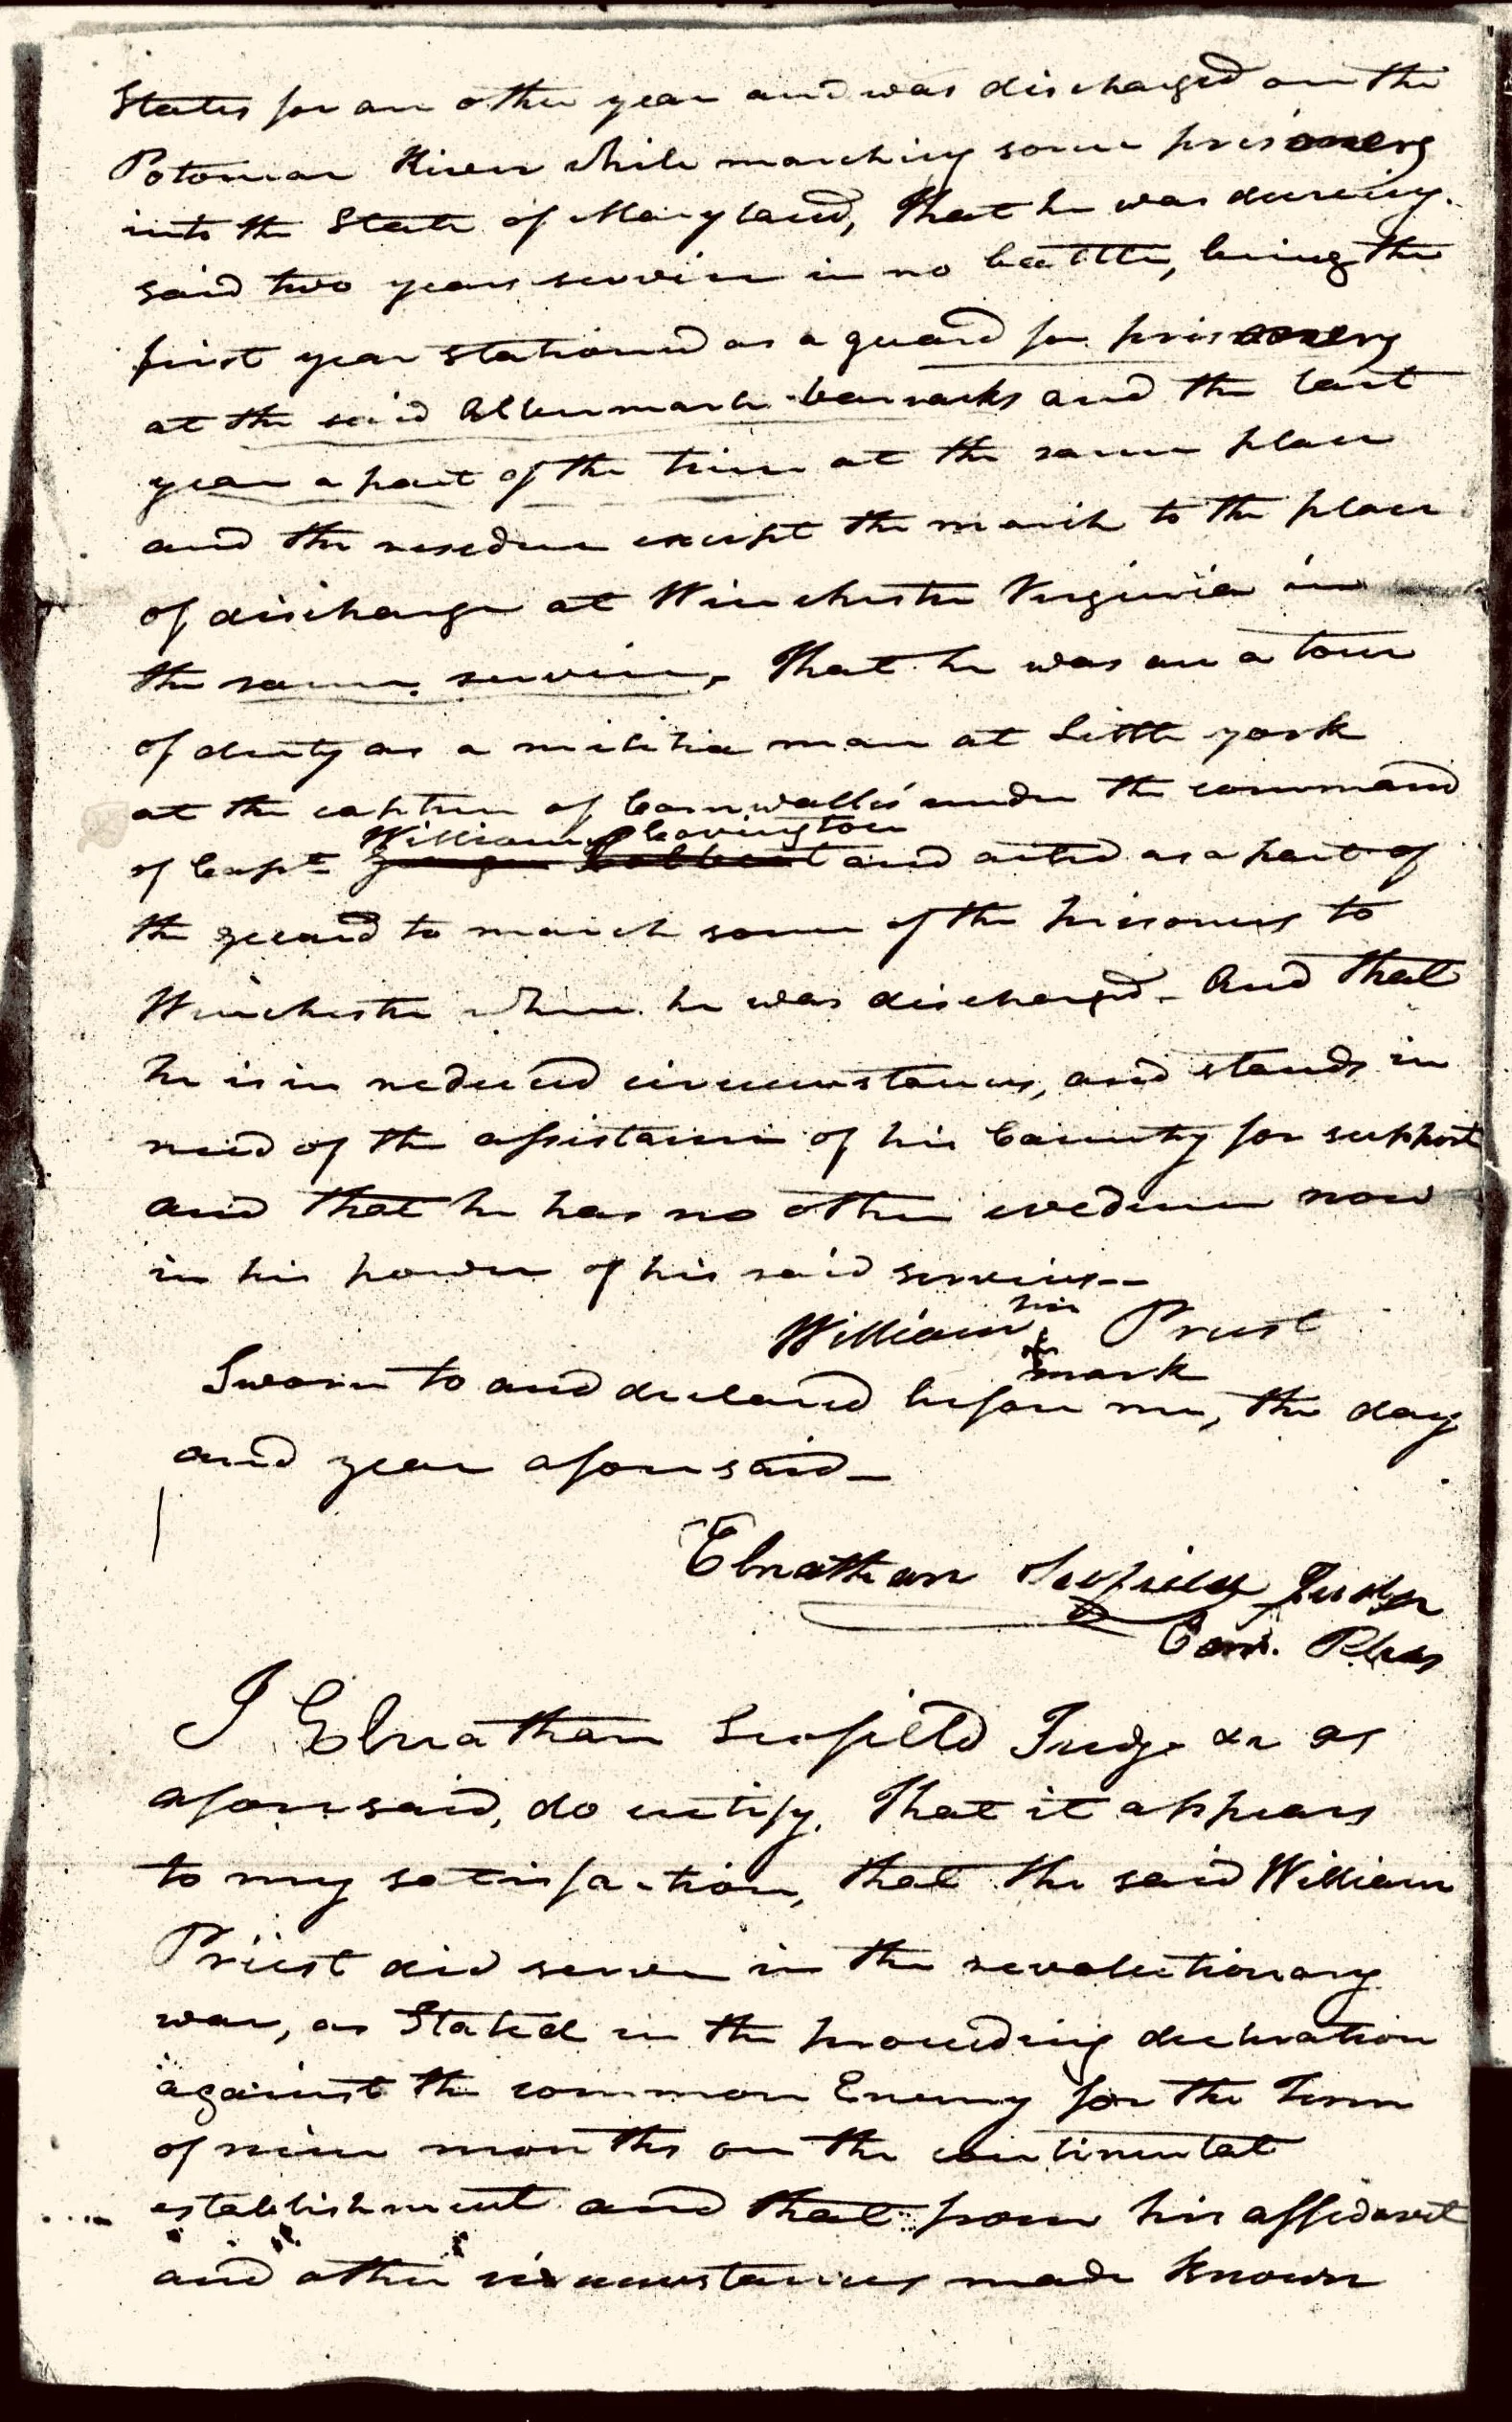 States for an other year and was discharged on the
Potomac River while marching some prisoners
into the State of Maryland, That he was dureing
said two years service in no battle, being the
first year stationed as a guard for prisoners
at the said Albemarle barracks and the last
year a part of the time at the same place
and the residue except the march to the place
of discharge at Winchester Virginia in
the same service, That he was on a tour
of duty as a militia man at Little york
at the capture of Cornwallis under the command
William Covington
of Capt and acted as a part of
the guard to march some of the prisoners to
Winchester where he was discharged - And that
he is in reduced circumstances, and stands in
need of the assistance of his Country for support
and that he has no other evedence now
in his power of his said services--
his
William Priest
mark
Sworn to and declared before me, the day
and year aforesaid -
Elnathan Scofield Judge
Com. Pleas
I Elnathan Scofield Judge &c as
aforesaid, do certify. That it appears
to my satisfaction, that the said William
Priest did serve in the revolutionary
war, as Stated in the preceeding declaration
against the common Enemy for the Term
of nine months on the continental
establishment and that from his affidavit
and other circumstances made known